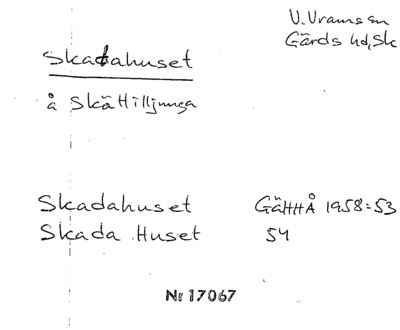 V. Vram s sn
Gärds hd, Sk
Skadahuset
å Skättilljunga
Skadahuset GäHHÅ 1958:53
Skada Huset 54
Nr 17067